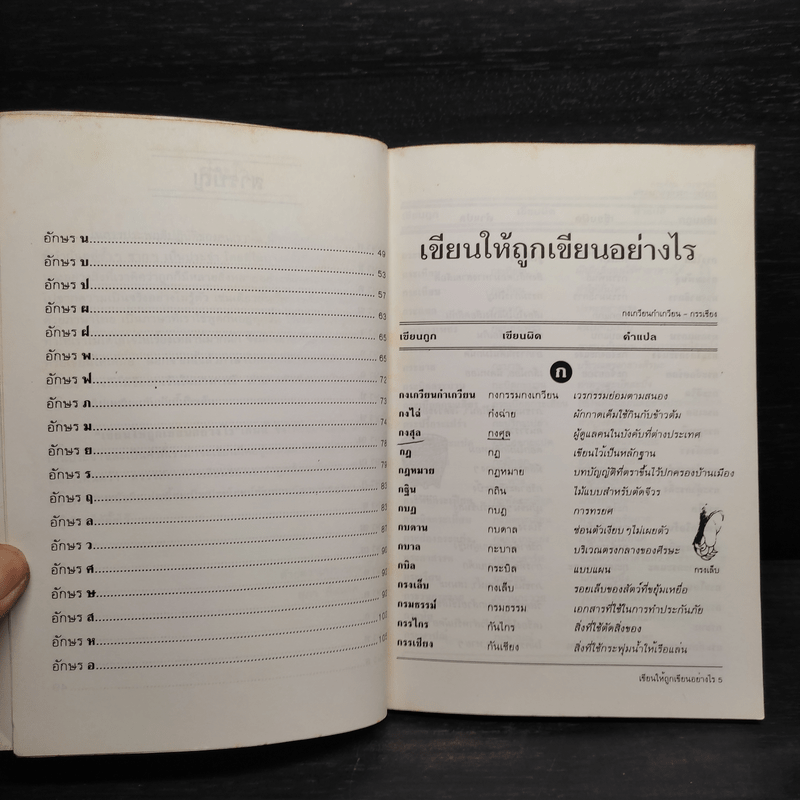 อักษร น 49
อักษร บ 53
อักษร ป 57
อักษร ผ 63
อักษร ฝ 65
อักษร พ 65
อักษร ฟ 72
อักษร ภ 73
อักษร ม 74
อักษร ย 78
อักษร ร 79
อักษร ฤ
อักษร ล
อักษร ว
อักษร ศ
อักษร ษ
อักษร ส
อักษร ห
อักษร อ
เขียนให้ถูกเขียนอย่างไร
กงเกวียนกำเกวียน - กรรเชียง
เขียนถูก เขียนผิด คำแปล
ก
กงเกวียนกำเกวียน กงกรรมกงเกวียน เวรกรรมย่อมตามสนอง
กงไฉ่ ก๋งฉ่าย ผักกาดเค็มใช้กินกับข้าวต้ม
กงสุล กงศุล ผู้ดูแลคนในบังคับที่ต่างประเทศ
กฎ กฏ เขียนไว้เป็นหลักฐาน
กฎหมาย กฏหมาย บทบัญญัติที่ตราขึ้นไว้ปกครองบ้านเมือง
กฐิน กถิน ไม้แบบสำหรับตัดจีวร
กบฏ กบฎ การทรยศ
กบดาน กบดาล ซ่อนตัวเงียบๆไม่เผยตัว
กบาล กะบาล บริเวณตรงกลางของศีรษะ
กบิล กระบิล แบบแผน
กรงเล็บ
กรงเล็บ กงเล็บ รอยเล็บของสัตว์ที่ขยุ้มเหยื่อ
กรมธรรม์ กรมธรรม เอกสารที่ใช้ในการทำประกันภัย
กรรไกร กันไกร สิ่งที่ใช้ตัดสิ่งของ
กรรเชียง กันเชียง สิ่งที่ใช้กระพุ่มน้ำให้เรือแล่น
เขียนให้ถูกเขียนอย่างไร 5